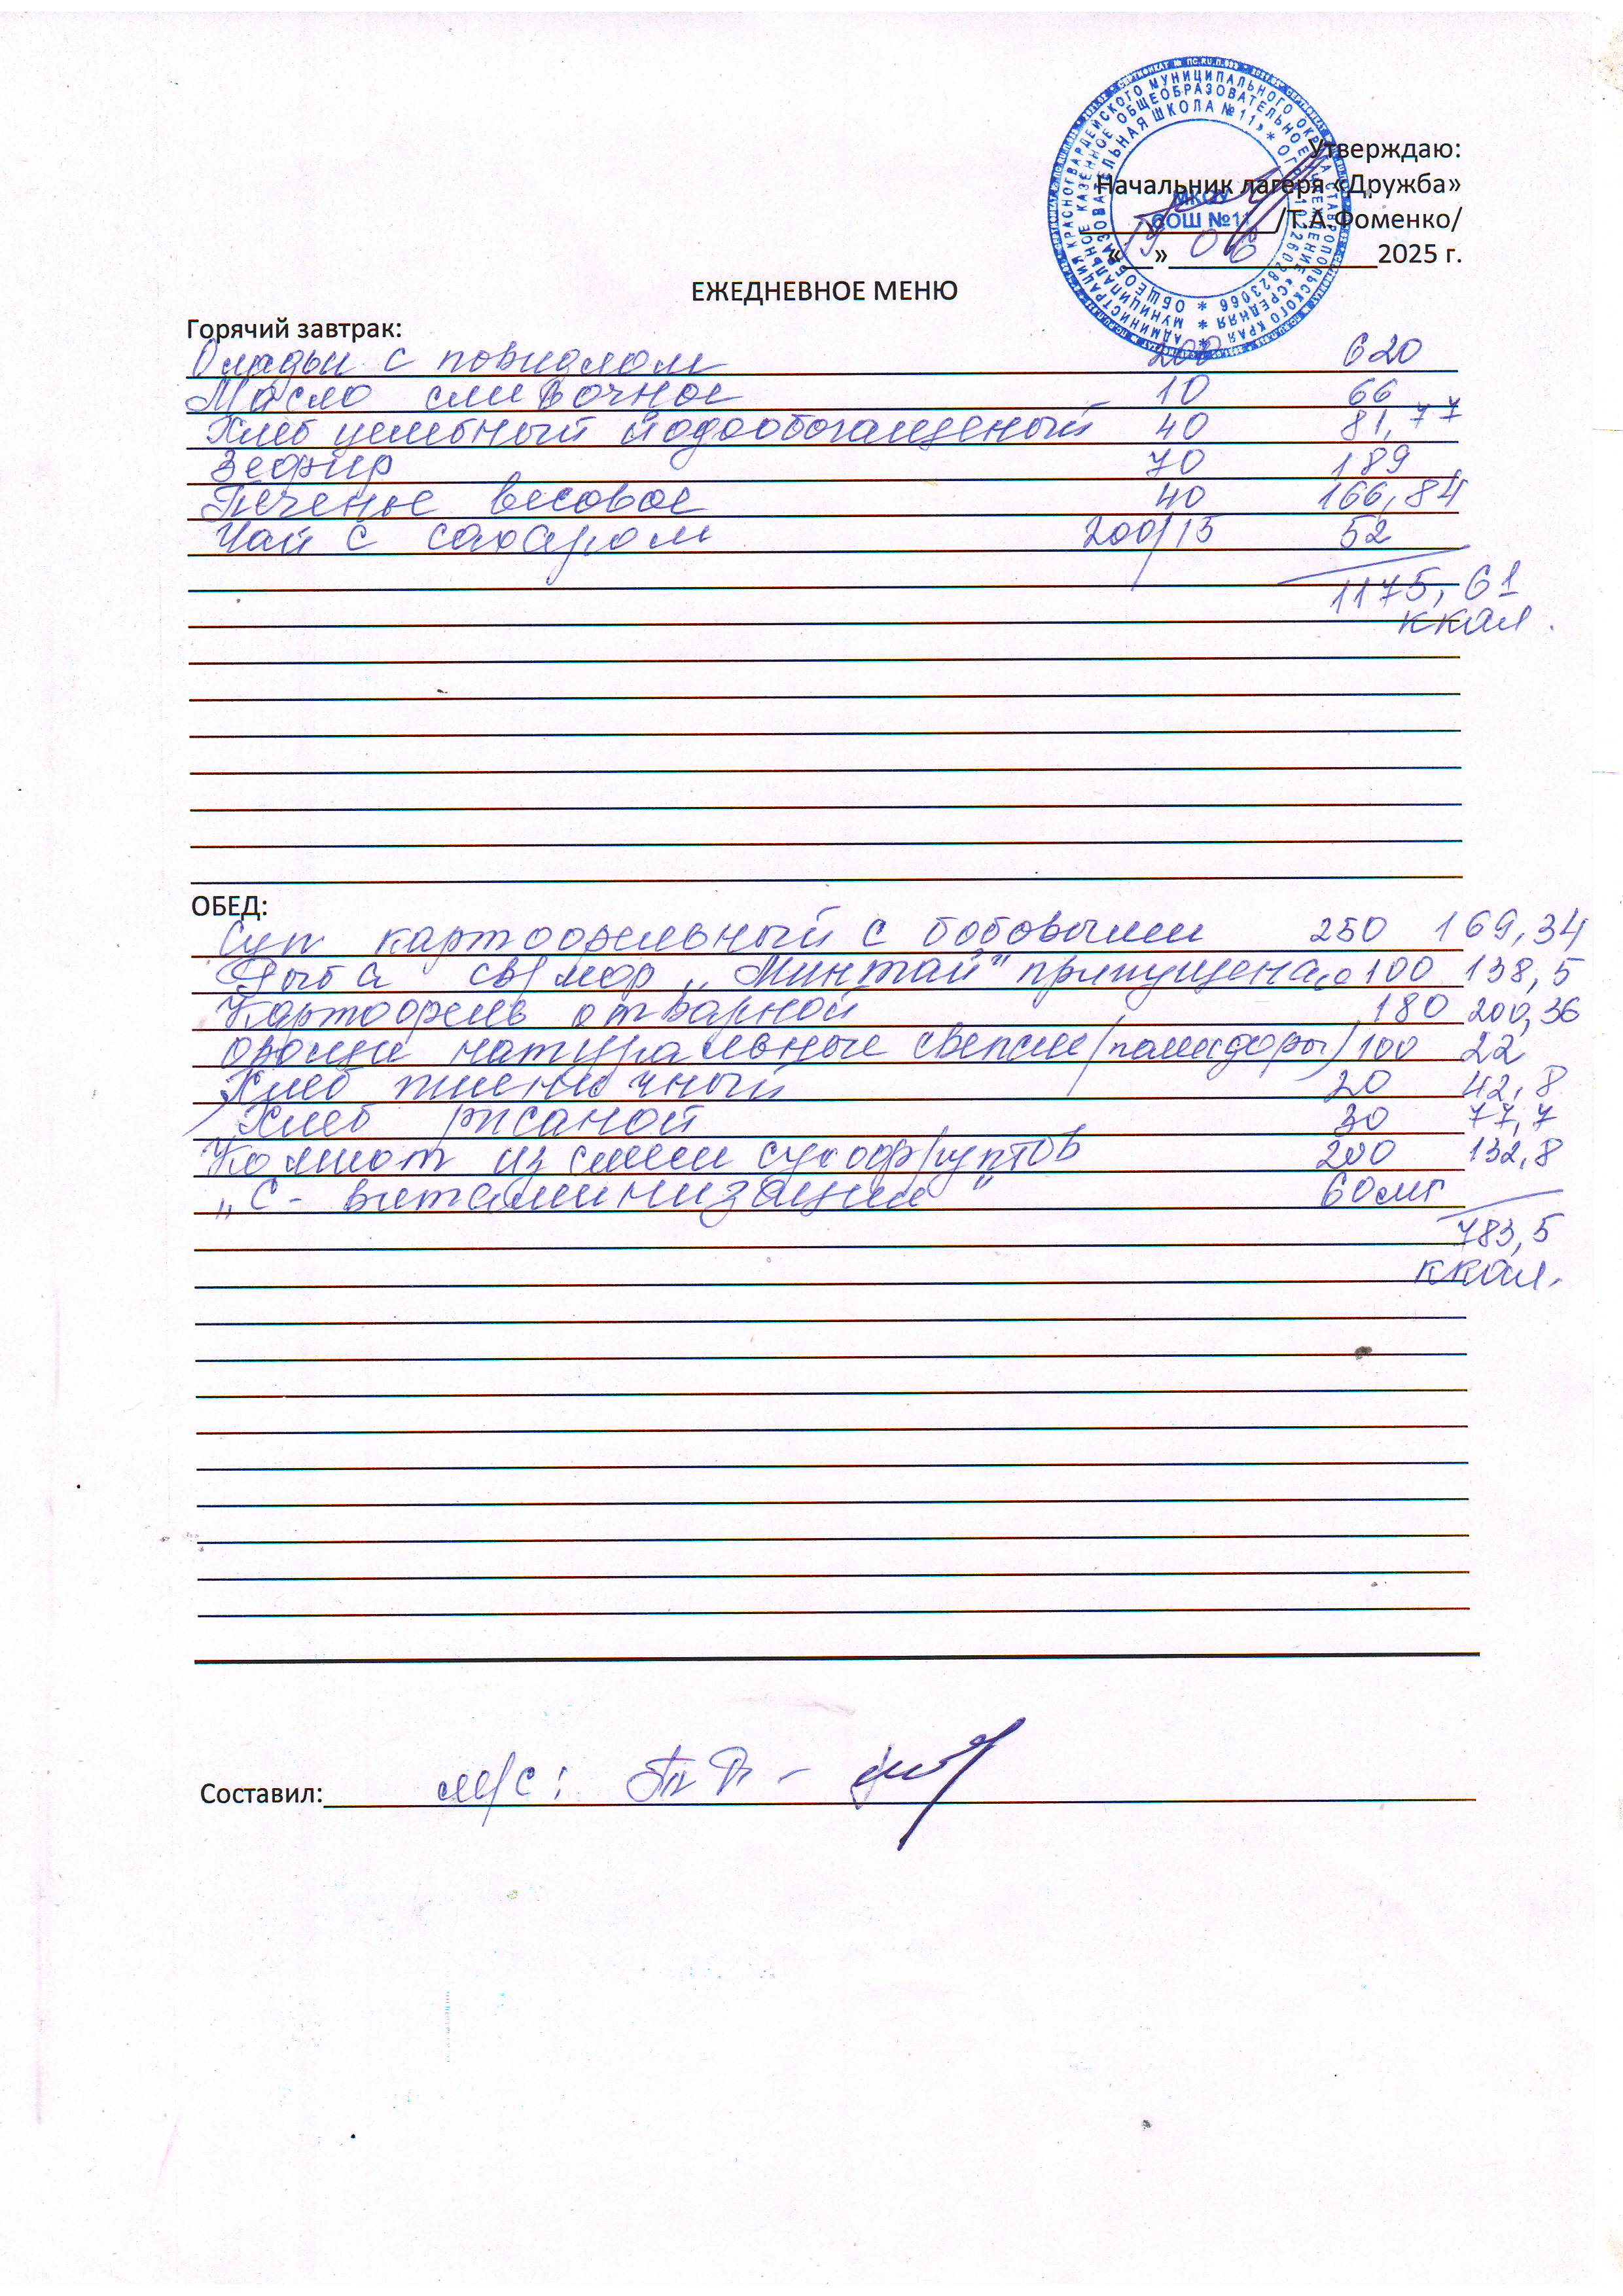 Утверждаю:
Начальник лагеря «Дружба»
МКОУ
СОШ №11
/Т.А.Фоменко/
«19» 06 2025 г.
ЕЖЕДНЕВНОЕ МЕНЮ
Горячий завтрак:
Оладьи с повидлом 200 620
Масло сливочное 10 66
Хлеб целебный йодообогащеный 40 81,77
Зефир 70 189
Печенье весовое 40 166,84
Чай с сахаром 200/15 52
1175,61
ккал.
ОБЕД:
Суп картофельный с бобовыми 250 169,34
Рыба св/мор „Минтай" припущеная 100 138,5
Картофель отварной 180 200,36
Овощи натуральные свежие (помидоры) 100 22
Хлеб пшеничный 20 42,8
Хлеб ржаной 30 77,7
Компот из смеси сухофруктов 200 132,8
„С - витаминизация" 60мг
783,5
ккал.
Составил: м/с: